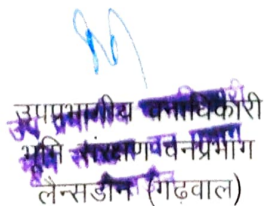 उपप्रभागीय वनाधिकारी
भूमि संरक्षण वनप्रभाग
लैन्सडौन (गढ़वाल)